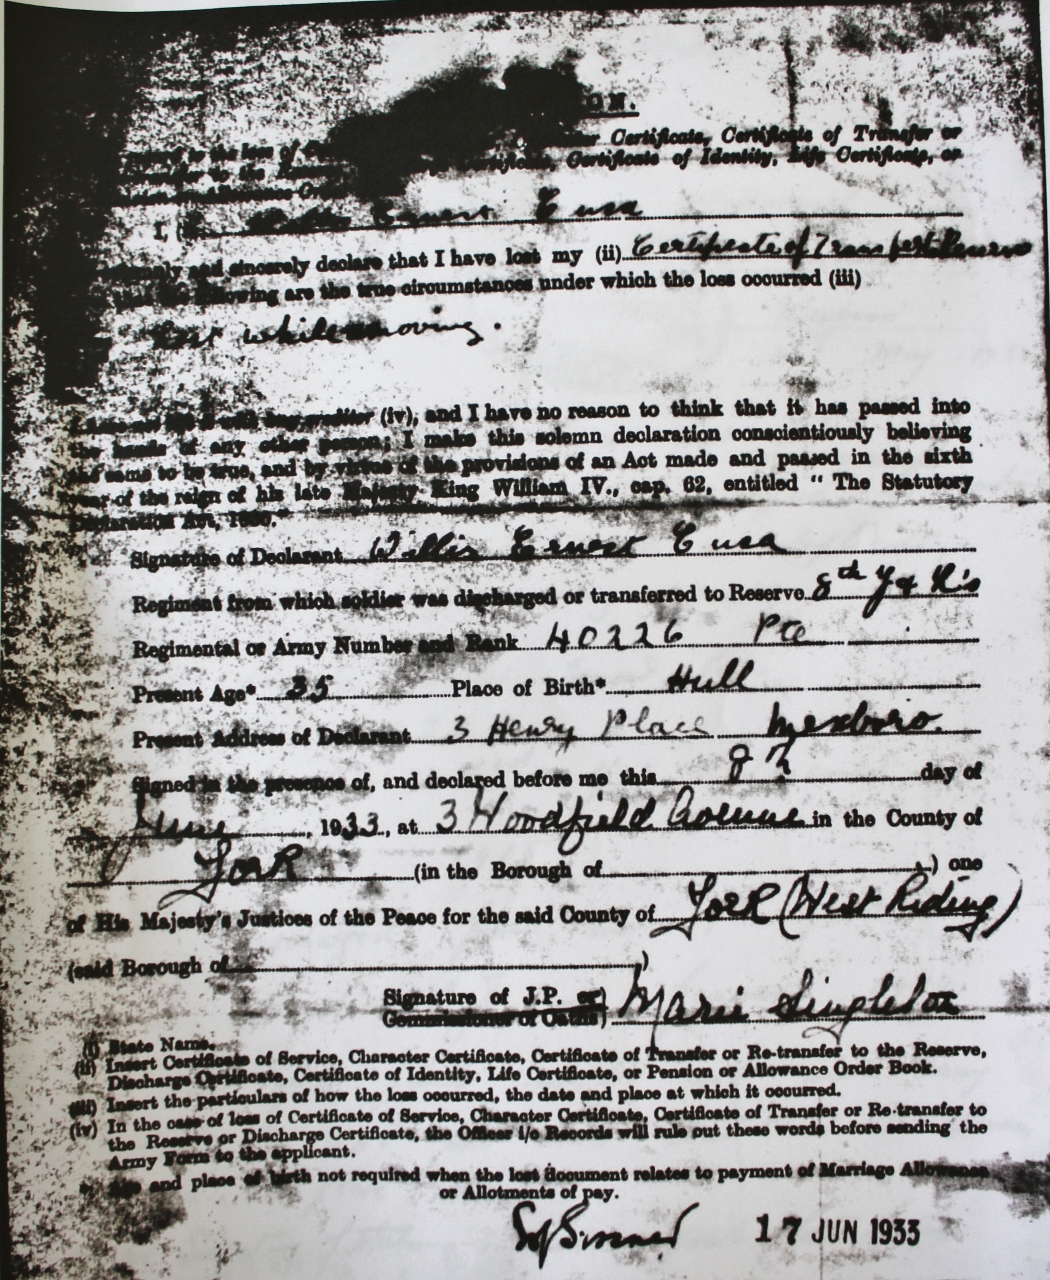 ON.
Certificate, Certificate of Transfer or
to the loss of
Certificate, Certificate of Identity, Life Certificate, or
I, Ernest Cusa
and sincerely declare that I have lost my (ii) Certificate of Transfer to Reserve
following are the true circumstances under which the loss occurred (iii)
Lost while moving.
(iv), and I have no reason to think that it has passed into
the hands of any other person; I make this solemn declaration conscientiously believing
the same to be true, and by virtue of the provisions of an Act made and passed in the sixth
year of the reign of his late Majesty King William IV., cap. 62, entitled “ The Statutory
Declaration Act,
Signature of Declarant Willis Ernest Cusa
Regiment from which soldier was discharged or transferred to Reserve 8th Y & L's
Regimental or Army Number and Rank 40226 Pte
Present Age* 35 Place of Birth* Hull
Present Address of Declarant 3 Henry Place Mexboro.
Signed in the presence of, and declared before me this 8th day of
June, 1933, at 3 Woodfield Avenue in the County of
York (in the Borough of ) one
of His Majesty's Justices of the Peace for the said County of York (West Riding)
(said Borough of )
Signature of J.P. or)
Commissioner of Oaths) Marie Singleton
(i) State Name.
(ii) Insert Certificate of Service, Character Certificate, Certificate of Transfer or Re-transfer to the Reserve,
Discharge Certificate, Certificate of Identity, Life Certificate, or Pension or Allowance Order Book.
(iii) Insert the particulars of how the loss occurred, the date and place at which it occurred.
(iv) In the case of loss of Certificate of Service, Character Certificate, Certificate of Transfer or Re-transfer to
the Reserve or Discharge Certificate, the Officer i/c Records will rule out these words before sending the
Army Form to the applicant.
* Age and place of birth not required when the lost document relates to payment of Marriage Allowance
or Allotments of pay.
17 JUN 1933